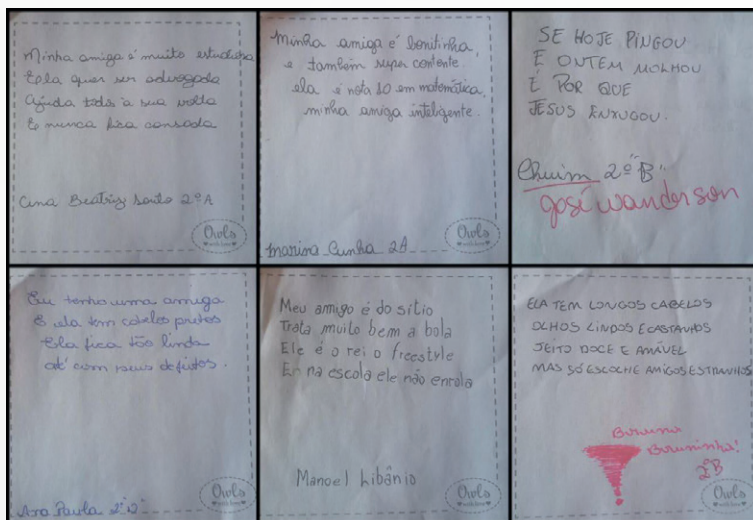 Minha amiga é muito estudiosa
Ela quer ser advogada
Ajuda todos a sua volta
E nunca fica cansada
Ana Beatriz Souto 2º A
Owls
with love
Minha amiga é bonitinha,
e também super contente.
ela é nota 10 em matemática,
minha amiga inteligente.
Marina Cunha 2A
Owls
with love
SE HOJE PINGOU
E ONTEM MOLHOU
É POR QUE
JESUS ENXUGOU.
Chuim 2º "B"
José Wanderson
Eu tenho uma amiga
E ela tem cabelos pretos
Ela fica tão linda
até com seus defeitos.
Ana Paula 2º "D"
Owls
with love
Meu amigo é do sítio
Trata muito bem a bola
Ele é o rei o freestyle
E na escola ele não enrola
Manoel Libânio
Owls
with love
ELA TEM LONGOS CABELOS
OLHOS LINDOS E CASTANHOS
JEITO DOCE E AMÁVEL
MAS SÓ ESCOLHE AMIGOS ESTRANHOS
2º B
Owls
with love